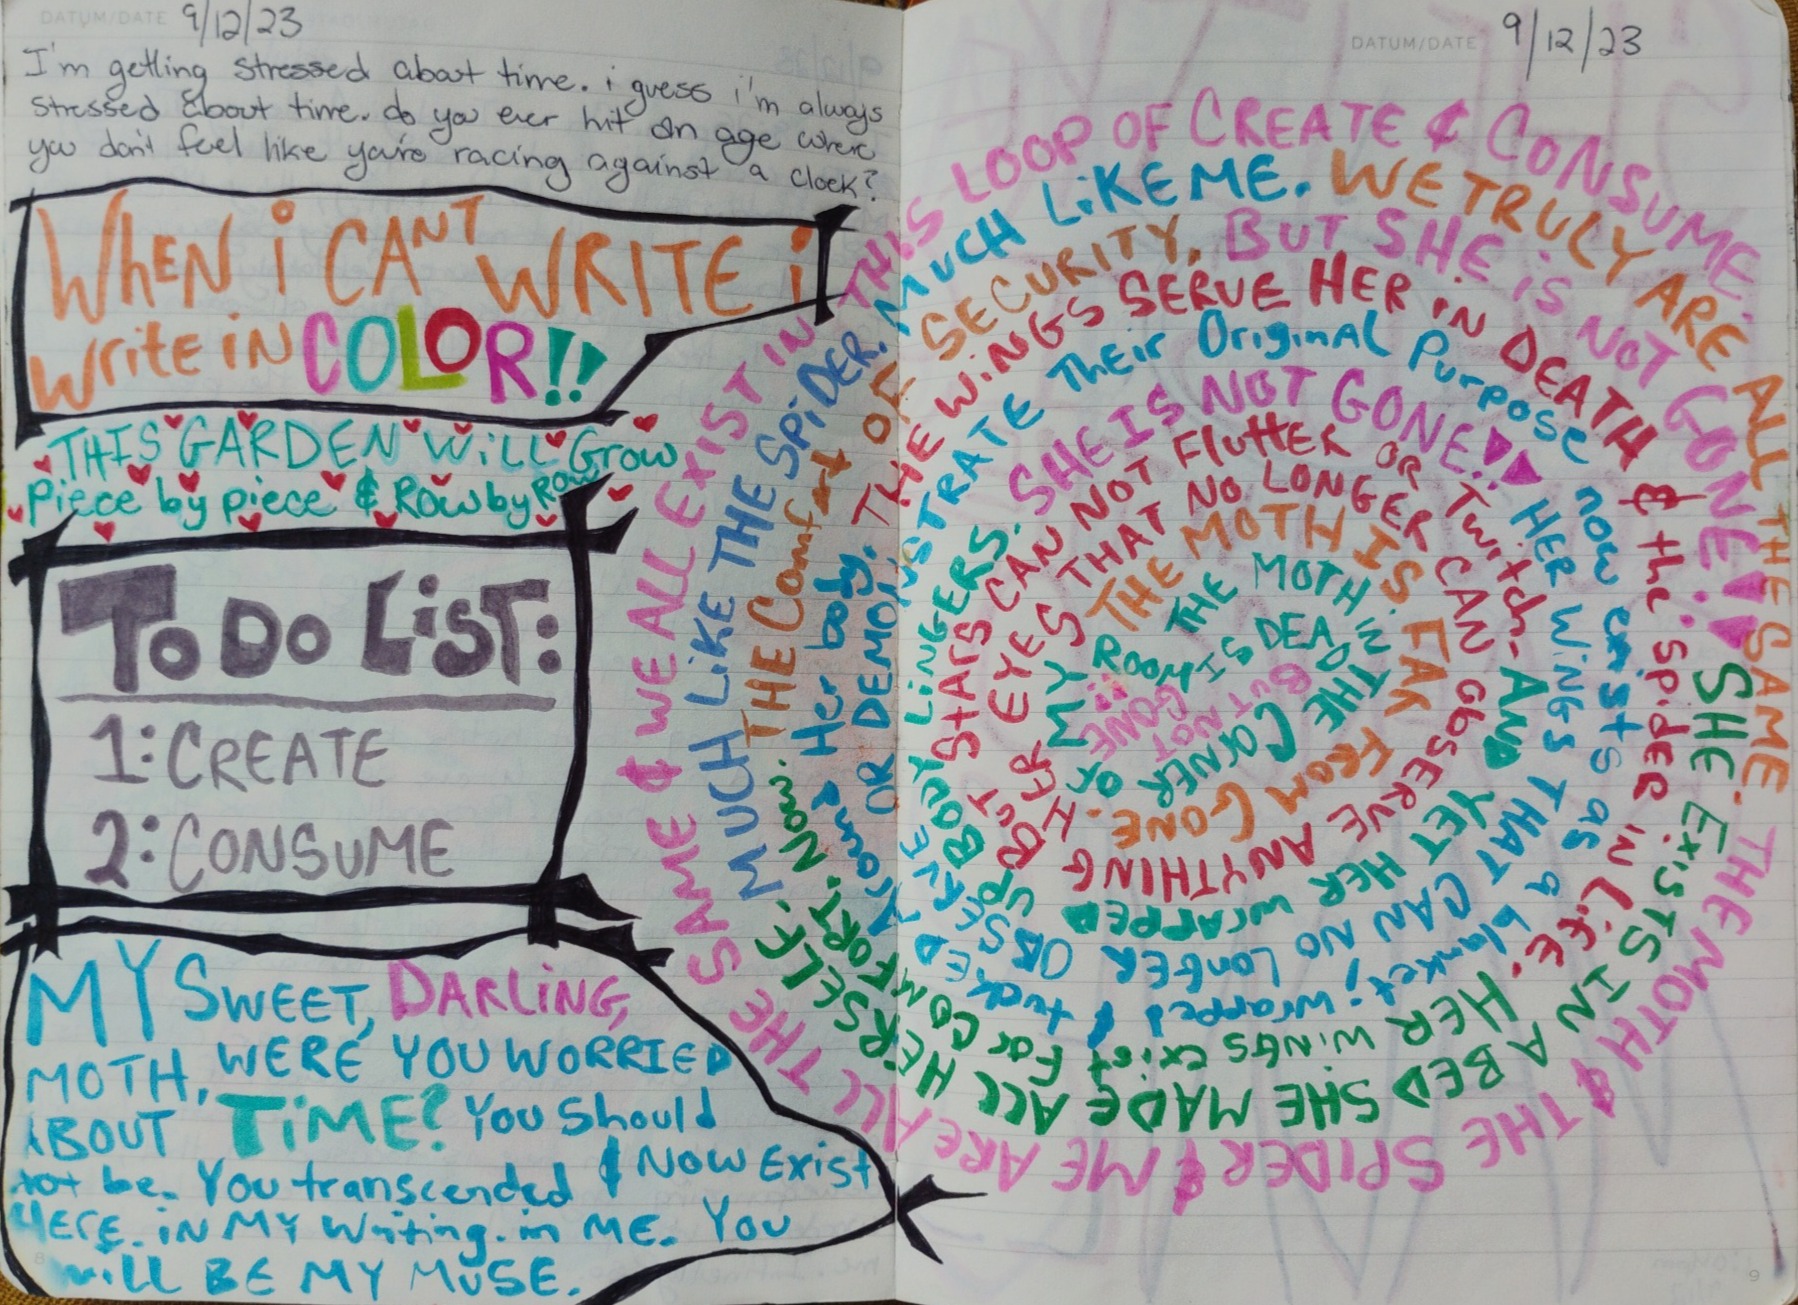 DATUM/DATE 9/12/23
I'm getting stressed about time. i guess i'm always
stressed about time. do you ever hit an age where
you don't feel like you're racing against a clock?
WHEN i CAN'T WRITE i
write iN COLOR!!
THIS GARDEN WiLL Grow
Piece by piece & Row by Row
TO DO LiST:
1: CREATE
2: CONSUME
MY SWEET, DARLiNG,
MOTH, WERE YOU WORRIED
ABOUT TiME? You Should
not be. You transcended & NOW Exist
HERE. iN MY writing. in ME. You
will BE MY MUSE.
DATUM/DATE 9/12/23
THE MOTH iN THE CORNER OF MY ROOM IS DEAD BUT NOT GONE!!
THE MOTH IS FAR FROM GONE.
HER EYES THAT NO LONGER CAN OBSERVE ANYTHING
BUT STARS CAN NOT Flutter OR Twitch- AND YET HER WRAPPED
UP BODY LINGERS. SHE IS NOT GONE!! HER WiNGS THAT CAN NO LONGER
OBSERVE OR DEMONSTRATE THEir Original Purpose now exists as a blanket; wrapped & tucked
Around Her body. THE WiNGS SERVE HER iN DEATH & the spider in LiFE. HER WiNGS exist For
COMFORT. Now. THE Comfort OF SECURITY. BUT SHE iS NOT GONE!! SHE ExiSTS IN A BED SHE MADE ALL
HERSELF. MUCH LiKE THE SPiDER. MUCH LiKE ME. WE TRULY ARE ALL THE SAME. THE MOTH & THE SPIDER & ME ARE ALL
THE SAME & WE ALL EXIST IN THIS LOOP OF CREATE & CONSUME.
8
9